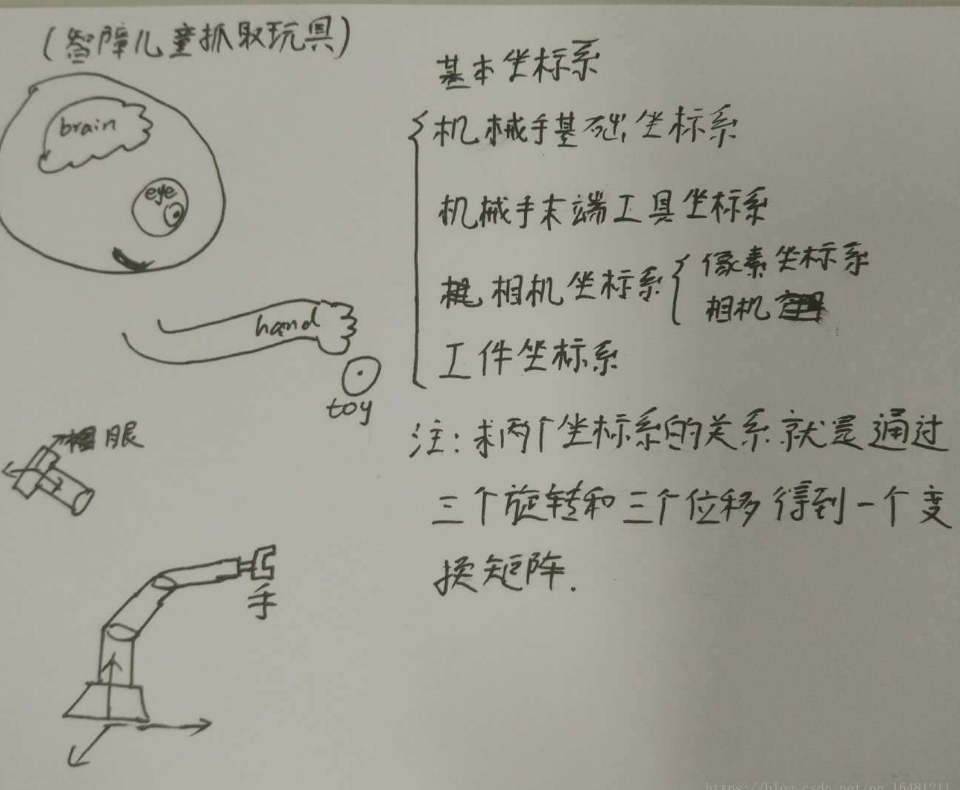 (智障儿童抓取玩具)
brain
eye
hand
toy
眼
手
基本坐标系
机械手基础坐标系
机械手末端工具坐标系
相机坐标系
像素坐标系
相机
工件坐标系
注:求两个坐标系的关系就是通过
三个旋转和三个位移得到一个变
换矩阵.